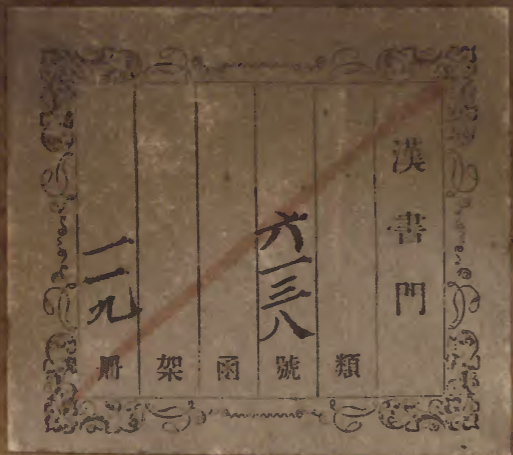 漢書門
類
六一三八號
函
架
一一九冊